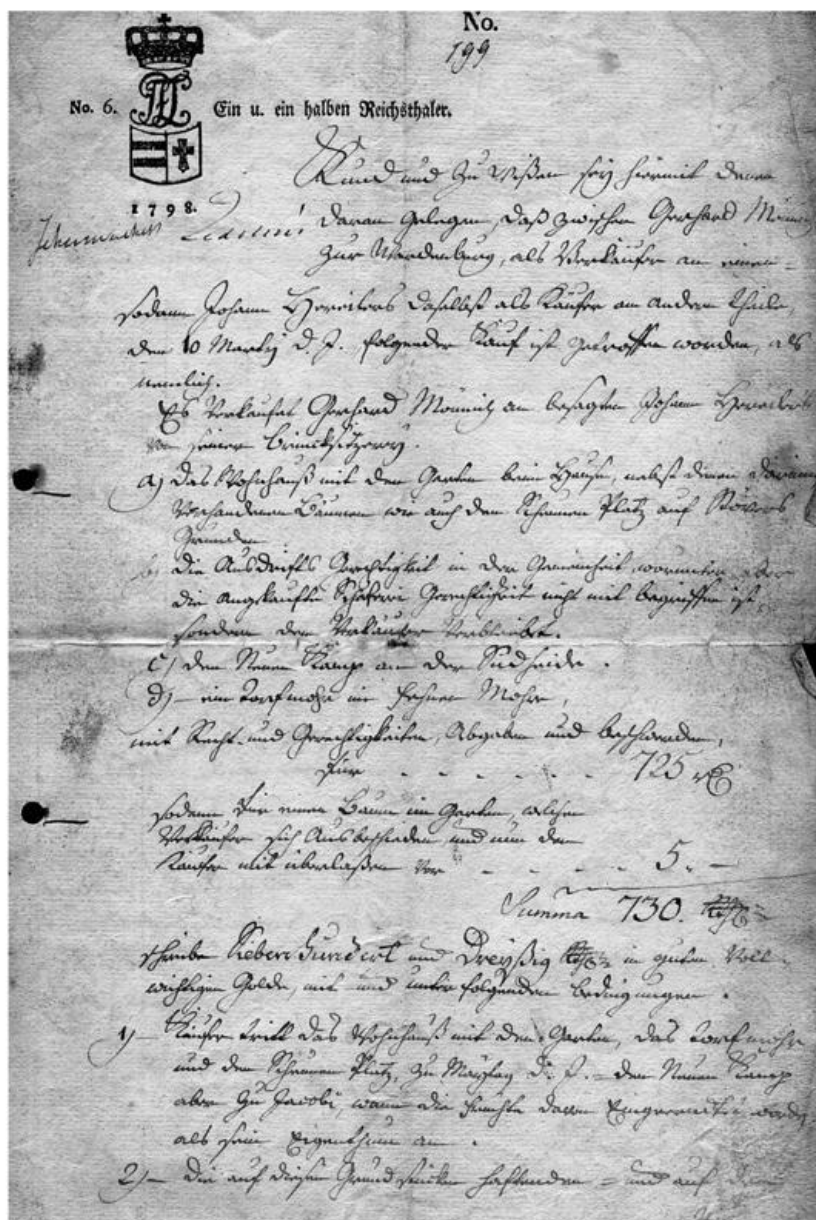 No.
199
No. 6. Ein u. ein halben Reichsthaler.
1798.
Kund und zu wißen sey hiermit denen
daran gelegen, daß zwischen Gerhard Mönnich
zur Wardenburg, als Verkäufer an einen
sodann Johann daselbst als Käufer am andern Theile,
den 10 Martij d. J. folgender Kauf ist getroffen worden, als
nemlich.
Es verkaufet Gerhard Mönnich an besagten Johann
seiner Brincksitzerey.
a) das Wohnhauß mit den Garten beim Hause, nebst denen darinn
vorhandenen Bäumen wie auch den Scheunen Platz auf Stövers
Gründen
b) die Ausdrifts Gerechtigkeit in der Gemeinheit, worunter aber
die angekaufte Schäferei Gerechtigkeit nicht mit begriffen ist
sondern dem Verkäufer verbleibet.
c) den Neuen Kamp an der Südheide.
d) ein Torfmohr im Mohr,
mit Recht und Gerechtigkeiten, Abgaben und Beschwerden,
für 725
sodann für einen Baum im Garten, welchen
Verkäufer sich ausbescheiden und nun dem
Käufer mit überlaßen vor 5. —
Summa 730.
schreibe Siebenhundert und Dreyßig in guten voll-
wichtigen Golde, mit und unter folgenden Bedingungen.
1) Käufer tritt das Wohnhauß mit den Garten, das Torfmohr
und den Scheunen Platz, zu Maytag d. J. — den Neuen Kamp
aber zu Jacobi, wann die Früchte davon eingeerndtet worden
als sein Eigenthum an.
2) die auf diesen Grundstücken haftenden = und auf